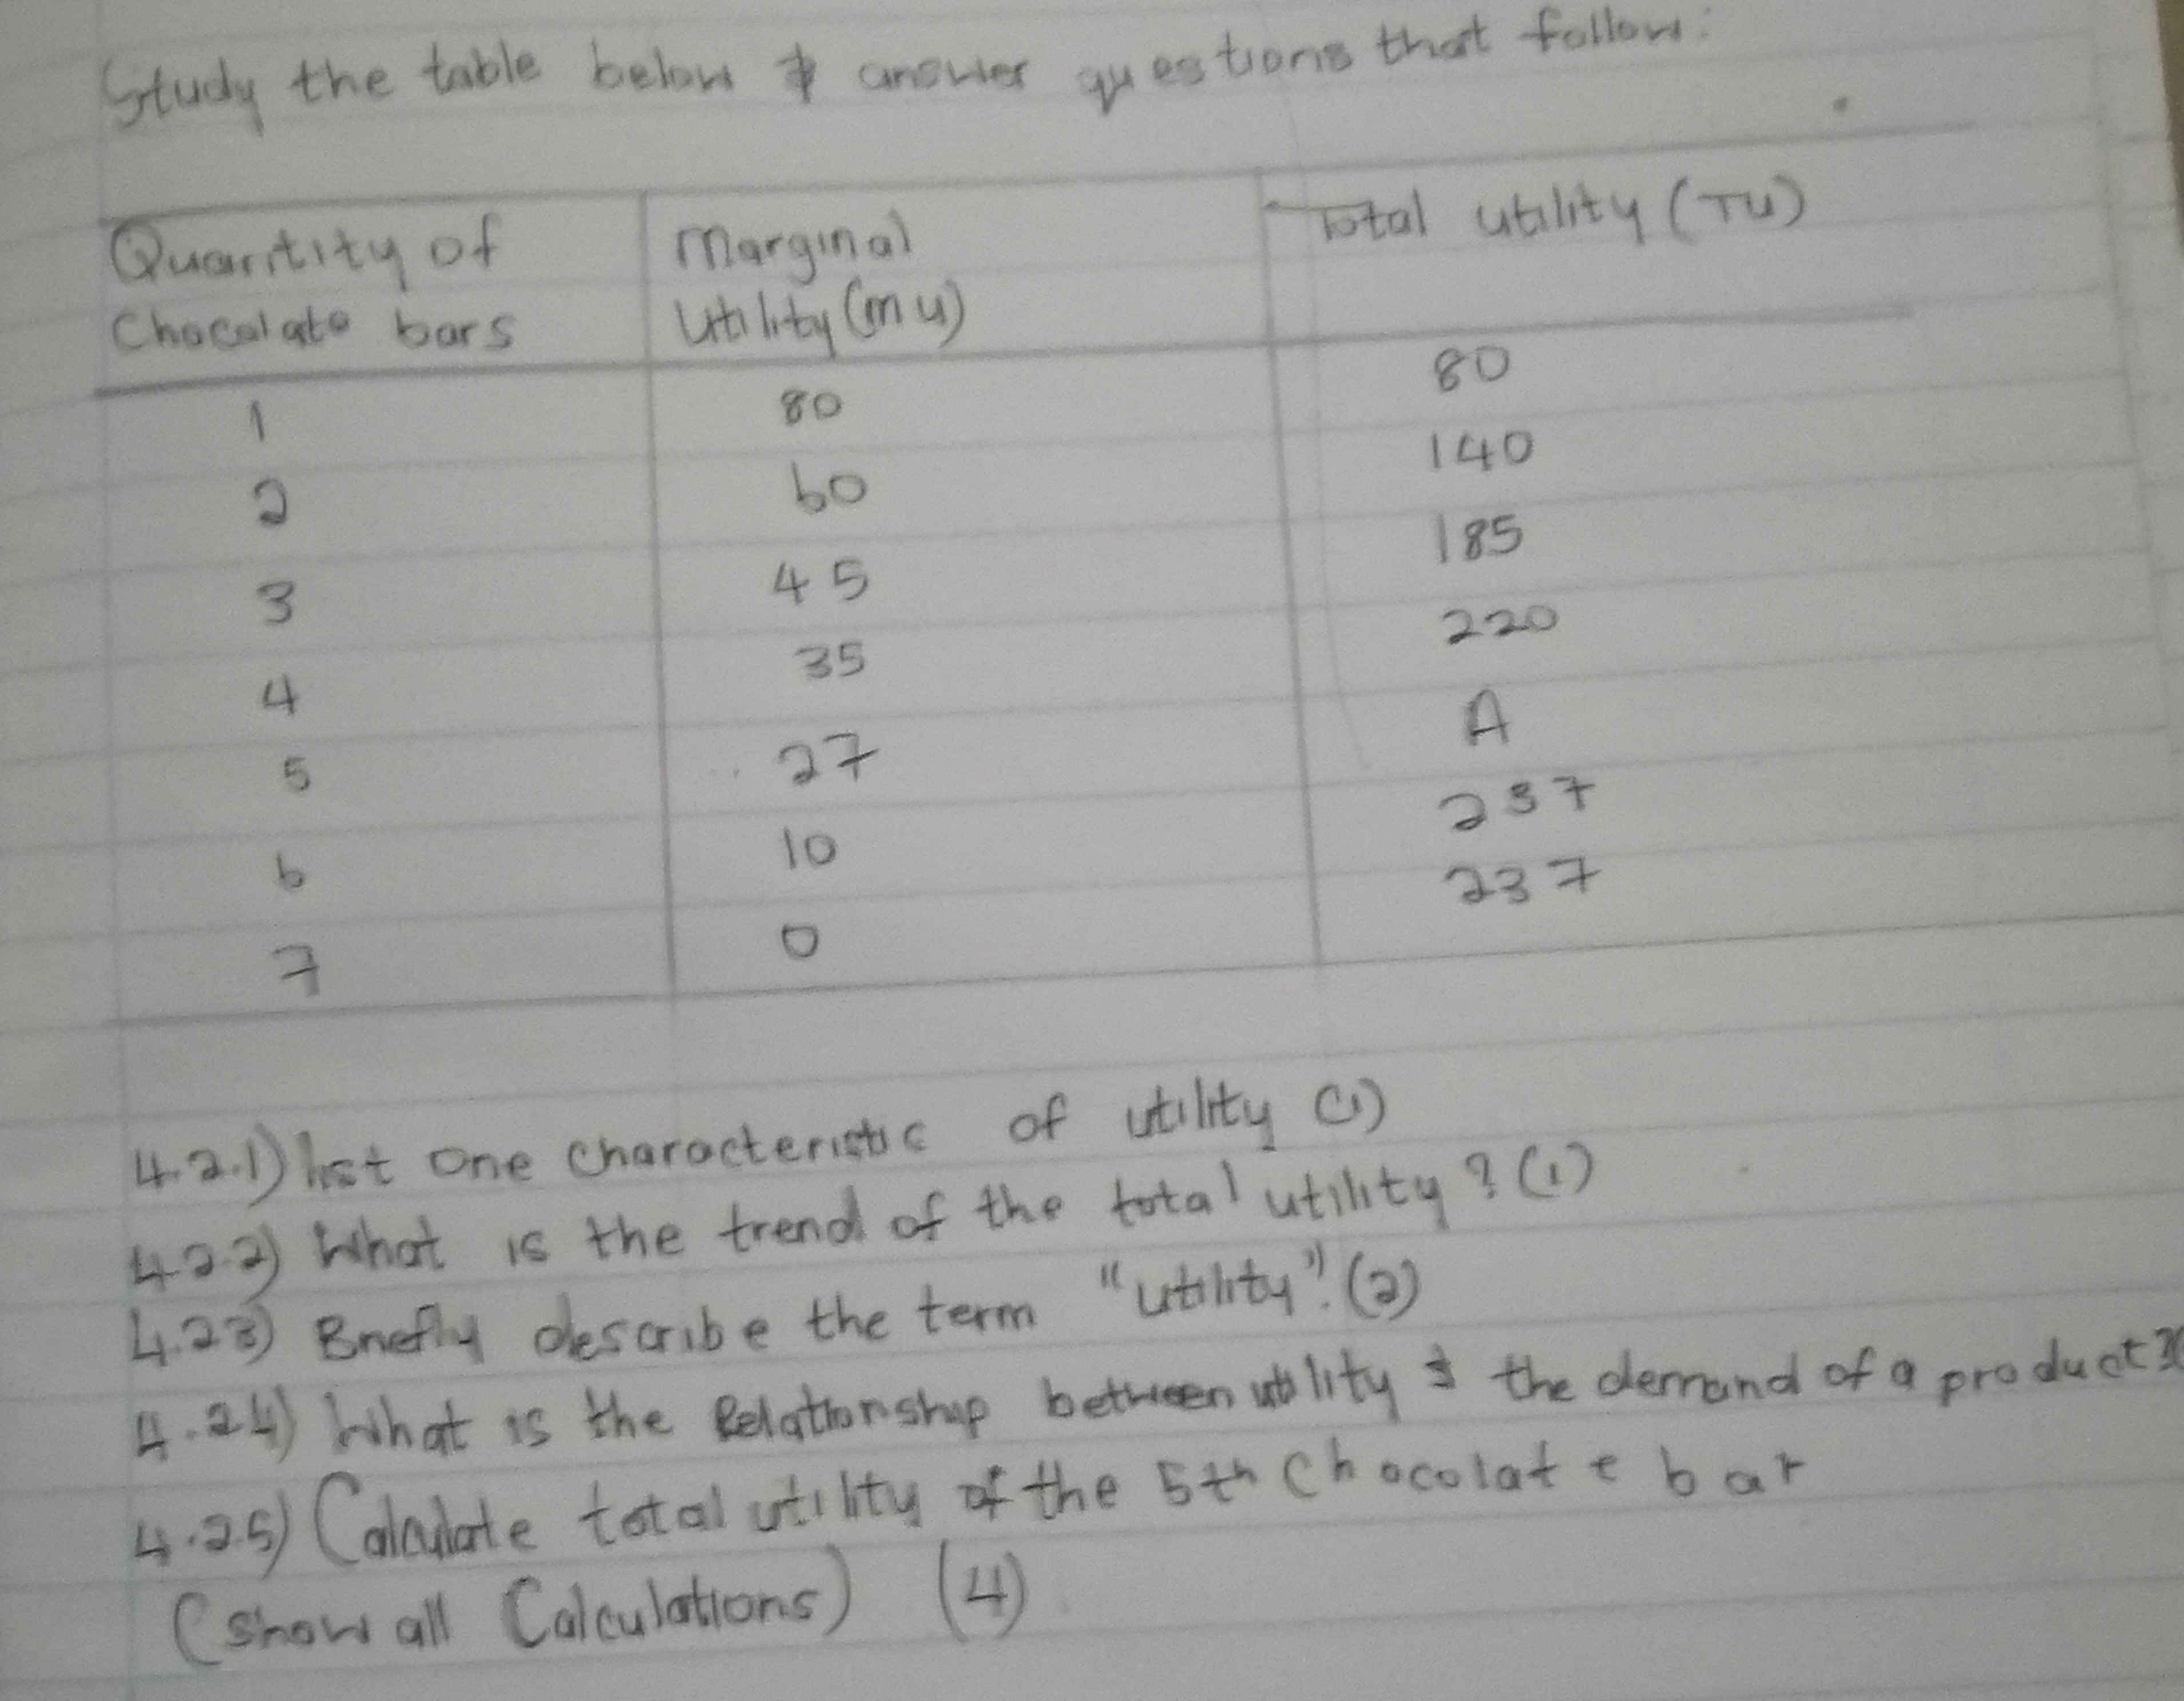 Study the table below & answer questions that follow:
Quantity of Chocolate bars | Marginal Utility (mu) | Total utility (TU)
1 | 80 | 80
2 | 60 | 140
3 | 45 | 185
4 | 35 | 220
5 | 27 | A
6 | 10 | 237
7 | 0 | 237
4.2.1) list one characteristic of utility (1)
4.2.2) What is the trend of the total utility? (1)
4.2.3) Briefly describe the term "utility". (2)
4.2.4) What is the Relationship between utility & the demand of a product?
4.2.5) Calculate total utility of the 5th chocolate bar
(show all Calculations) (4)